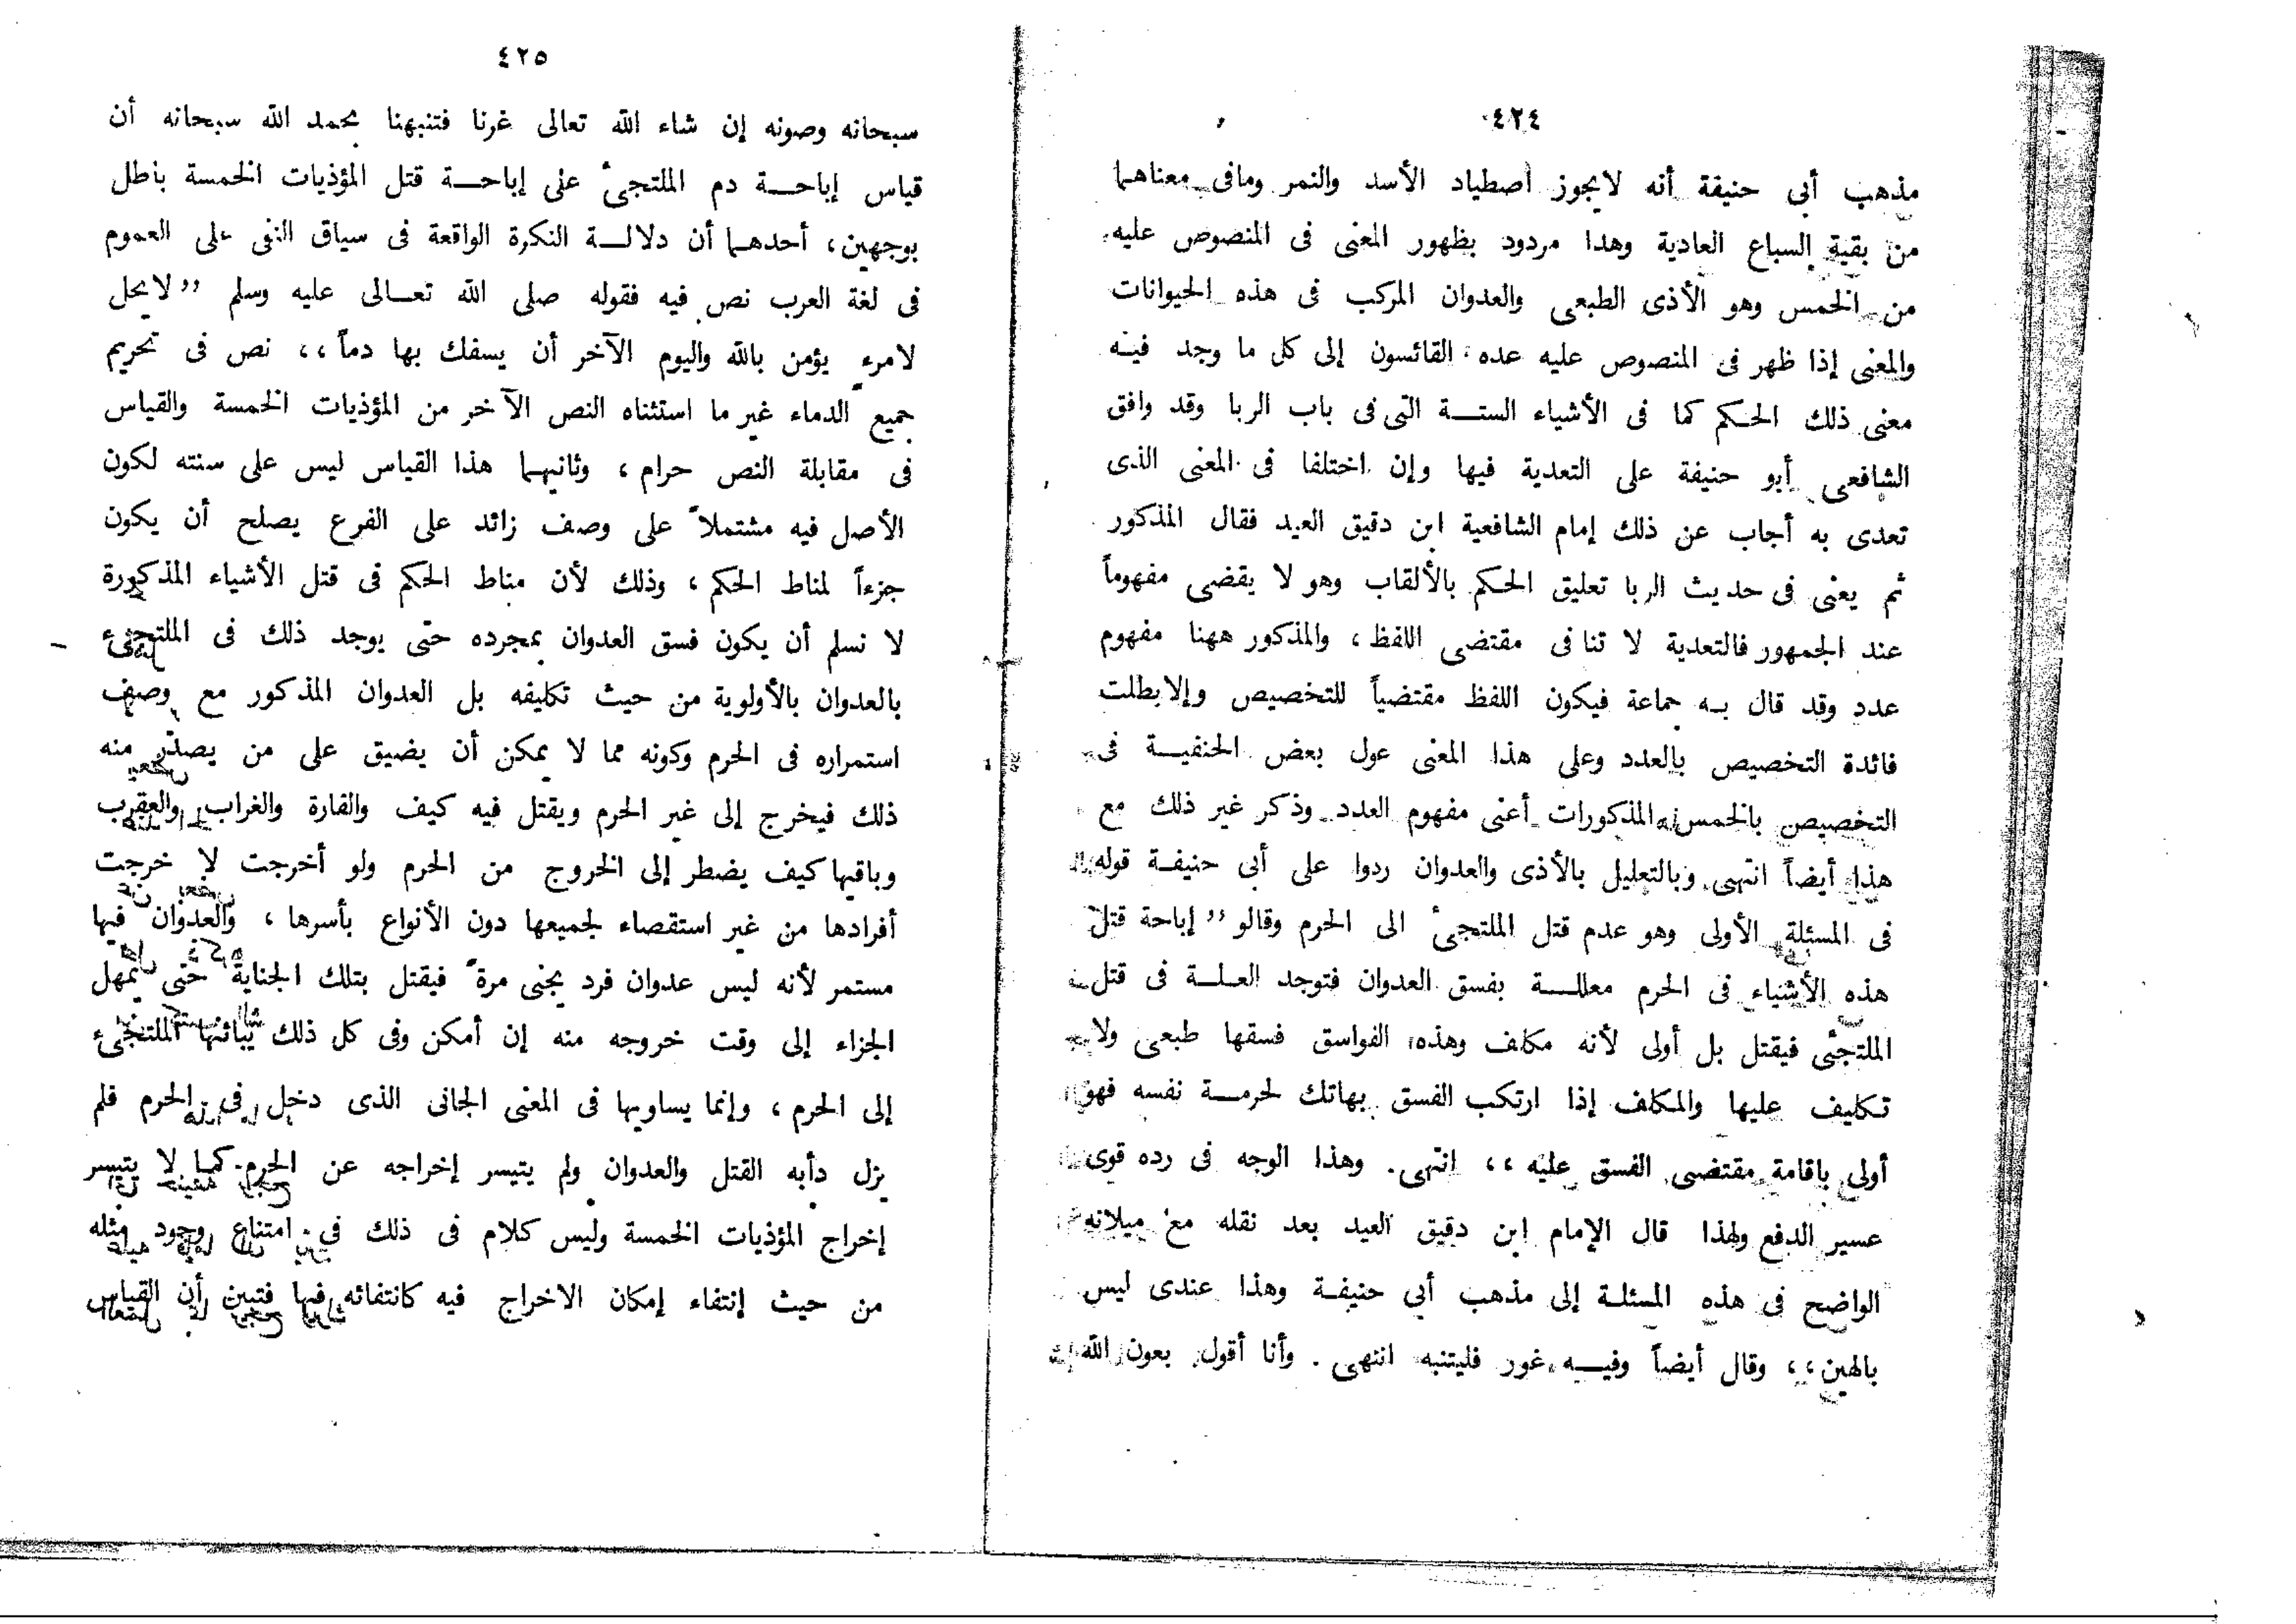 ٤٢٤
مذهب أبى حنيفة أنه لايجوز اصطياد الأسد والنمر ومافى معناهما
من بقية السباع العادية وهذا مردود بظهور المعنى فى المنصوص عليه
من الخمس وهو الأذى الطبعى والعدوان المركب فى هذه الحيوانات
والمعنى إذا ظهر فى المنصوص عليه عده القائسون إلى كل ما وجد فيه
معنى ذلك الحكم كما فى الأشياء الستة التى فى باب الربا وقد وافق
الشافعى أبو حنيفة على التعدية فيها وإن اختلفا فى المعنى الذى
تعدى به أجاب عن ذلك إمام الشافعية ابن دقيق العيد فقال المذكور
ثم يعنى فى حديث الربا تعليق الحكم بالألقاب وهو لا يقضى مفهوماً
عند الجمهور فالتعدية لا تنافى مقتضى اللفظ، والمذكور ههنا مفهوم
عدد وقد قال به جماعة فيكون اللفظ مقتضياً للتخصيص وإلا بطلت
فائدة التخصيص بالعدد وعلى هذا المعنى عول بعض الحنفية فى
التخصيص بالخمس المذكورات أعنى مفهوم العدد وذكر غير ذلك مع
هذا أيضاً انتهى وبالتعليل بالأذى والعدوان ردوا على أبى حنيفة قوله
فى المسئلة الأولى وهو عدم قتل الملتجئ الى الحرم وقالو ,, إباحة قتل
هذه الأشياء فى الحرم معللة بفسق العدوان فتوجد العلة فى قتل
الملتجئى فيقتل بل أولى لأنه مكلف وهذه الفواسق فسقها طبعى ولا
تكليف عليها والمكلف إذا ارتكب الفسق بهاتك لحرمة نفسه فهو
أولى باقامة مقتضى الفسق عليه ،، انتهى. وهذا الوجه فى رده قوى
عسير الدفع ولهذا قال الإمام ابن دقيق العيد بعد نقله مع ميلانه
الواضح فى هذه المسئلة إلى مذهب أبى حنيفة وهذا عندى ليس
بالهين،، وقال أيضاً وفيه غور فليتنبه انتهى . وأنا أقول بعون الله
٤٢٥
سبحانه وصونه إن شاء الله تعالى غرنا فتنبهنا بحمد الله سبحانه أن
قياس إباحة دم الملتجئ على إباحة قتل المؤذيات الخمسة باطل
بوجهين، أحدهما أن دلالة النكرة الواقعة فى سياق النفى على العموم
فى لغة العرب نص فيه فقوله صلى الله تعالى عليه وسلم ,, لايحل
لامرء يؤمن بالله واليوم الآخر أن يسفك بها دماً ،، نص فى تحريم
جميع الدماء غير ما استثناه النص الآخر من المؤذيات الخمسة والقياس
فى مقابلة النص حرام ، وثانيهما هذا القياس ليس على سنته لكون
الأصل فيه مشتملاً على وصف زائد على الفرع يصلح أن يكون
جزءاً لمناط الحكم ، وذلك لأن مناط الحكم فى قتل الأشياء المذكورة
لا نسلم أن يكون فسق العدوان بمجرده حتى يوجد ذلك فى الملتجئ
بالعدوان بالأولوية من حيث تكليفه بل العدوان المذكور مع وصف
استمراره فى الحرم وكونه مما لا يمكن أن يضيق على من يصدر منه
ذلك فيخرج إلى غير الحرم ويقتل فيه كيف والفارة والغراب والعقرب
وباقيها كيف يضطر إلى الخروج من الحرم ولو أخرجت لا خرجت
أفرادها من غير استقصاء لجميعها دون الأنواع بأسرها ، والعدوان فيها
مستمر لأنه ليس عدوان فرد يجنى مرة فيقتل بتلك الجناية حتى يمهل
الجزاء إلى وقت خروجه منه إن أمكن وفى كل ذلك يباثنها الملتجئ
إلى الحرم ، وإنما يساويها فى المعنى الجانى الذى دخل فى الحرم فلم
يزل دأبه القتل والعدوان ولم يتيسر إخراجه عن الحرم كما لا يتيسر
إخراج المؤذيات الخمسة وليس كلام فى ذلك فى امتناع وجود مثله
من حيث إنتفاء إمكان الاخراج فيه كانتفائه فيها فتبين أن القياس